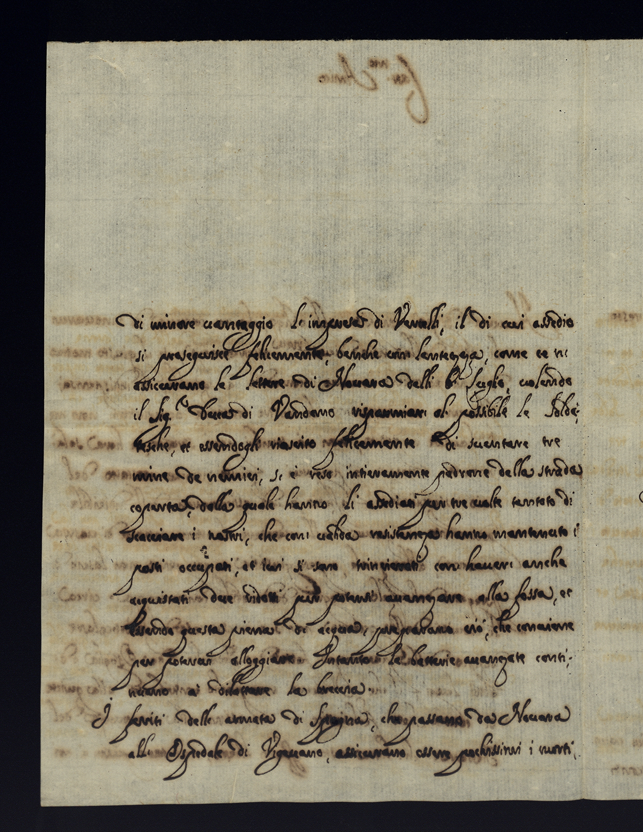 di minore vantaggio l'impresa di Vercelli, il di cui assedio
si proseguisce felicemente, benche con lentezza, come ce ne
assicurano le lettere di Novara delli 6 Luglio, volendo
il Sig.r Duca di Vandomo risparmiar al possibile le Solda-
tesche, et essendogli riuscito felicemente di sventare tre
mine de nemici, si è reso intieramente padrone della strada
coperta, dalla quale hanno li assediati per tre volte tentato di
scacciare i nostri, che con valida resistenza hanno mantenuto i
posti occupati, et ivi si sono trincierati con haver anche
acquistati due ridotti per potersi avanzare alla fossa, et
essendo questa piena di acqua, preparano ciò, che conviene
per potervi alloggiare. Intanto le batterie avanzate conti-
nuano a dilattare la breccia.
I feriti dell armata di Spagna, che passano da Novara
alli Ospedale di Vigevano, assicurano essere pochissimi i morti,